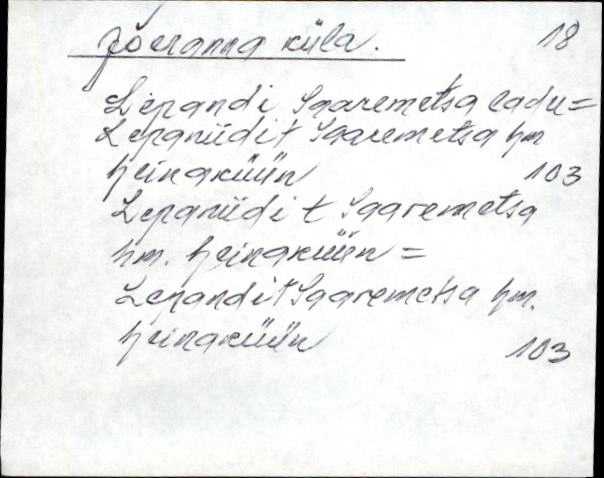 Jõeranna küla. 18
Lepandi Saaremetsa ladu=
Lepaniidit Saaremetsa hm
heinaküün 103
Lepaniidi t Saaremetsa
hm. heinaküün =
Lepandit Saaremetsa hm.
heinaküün 103